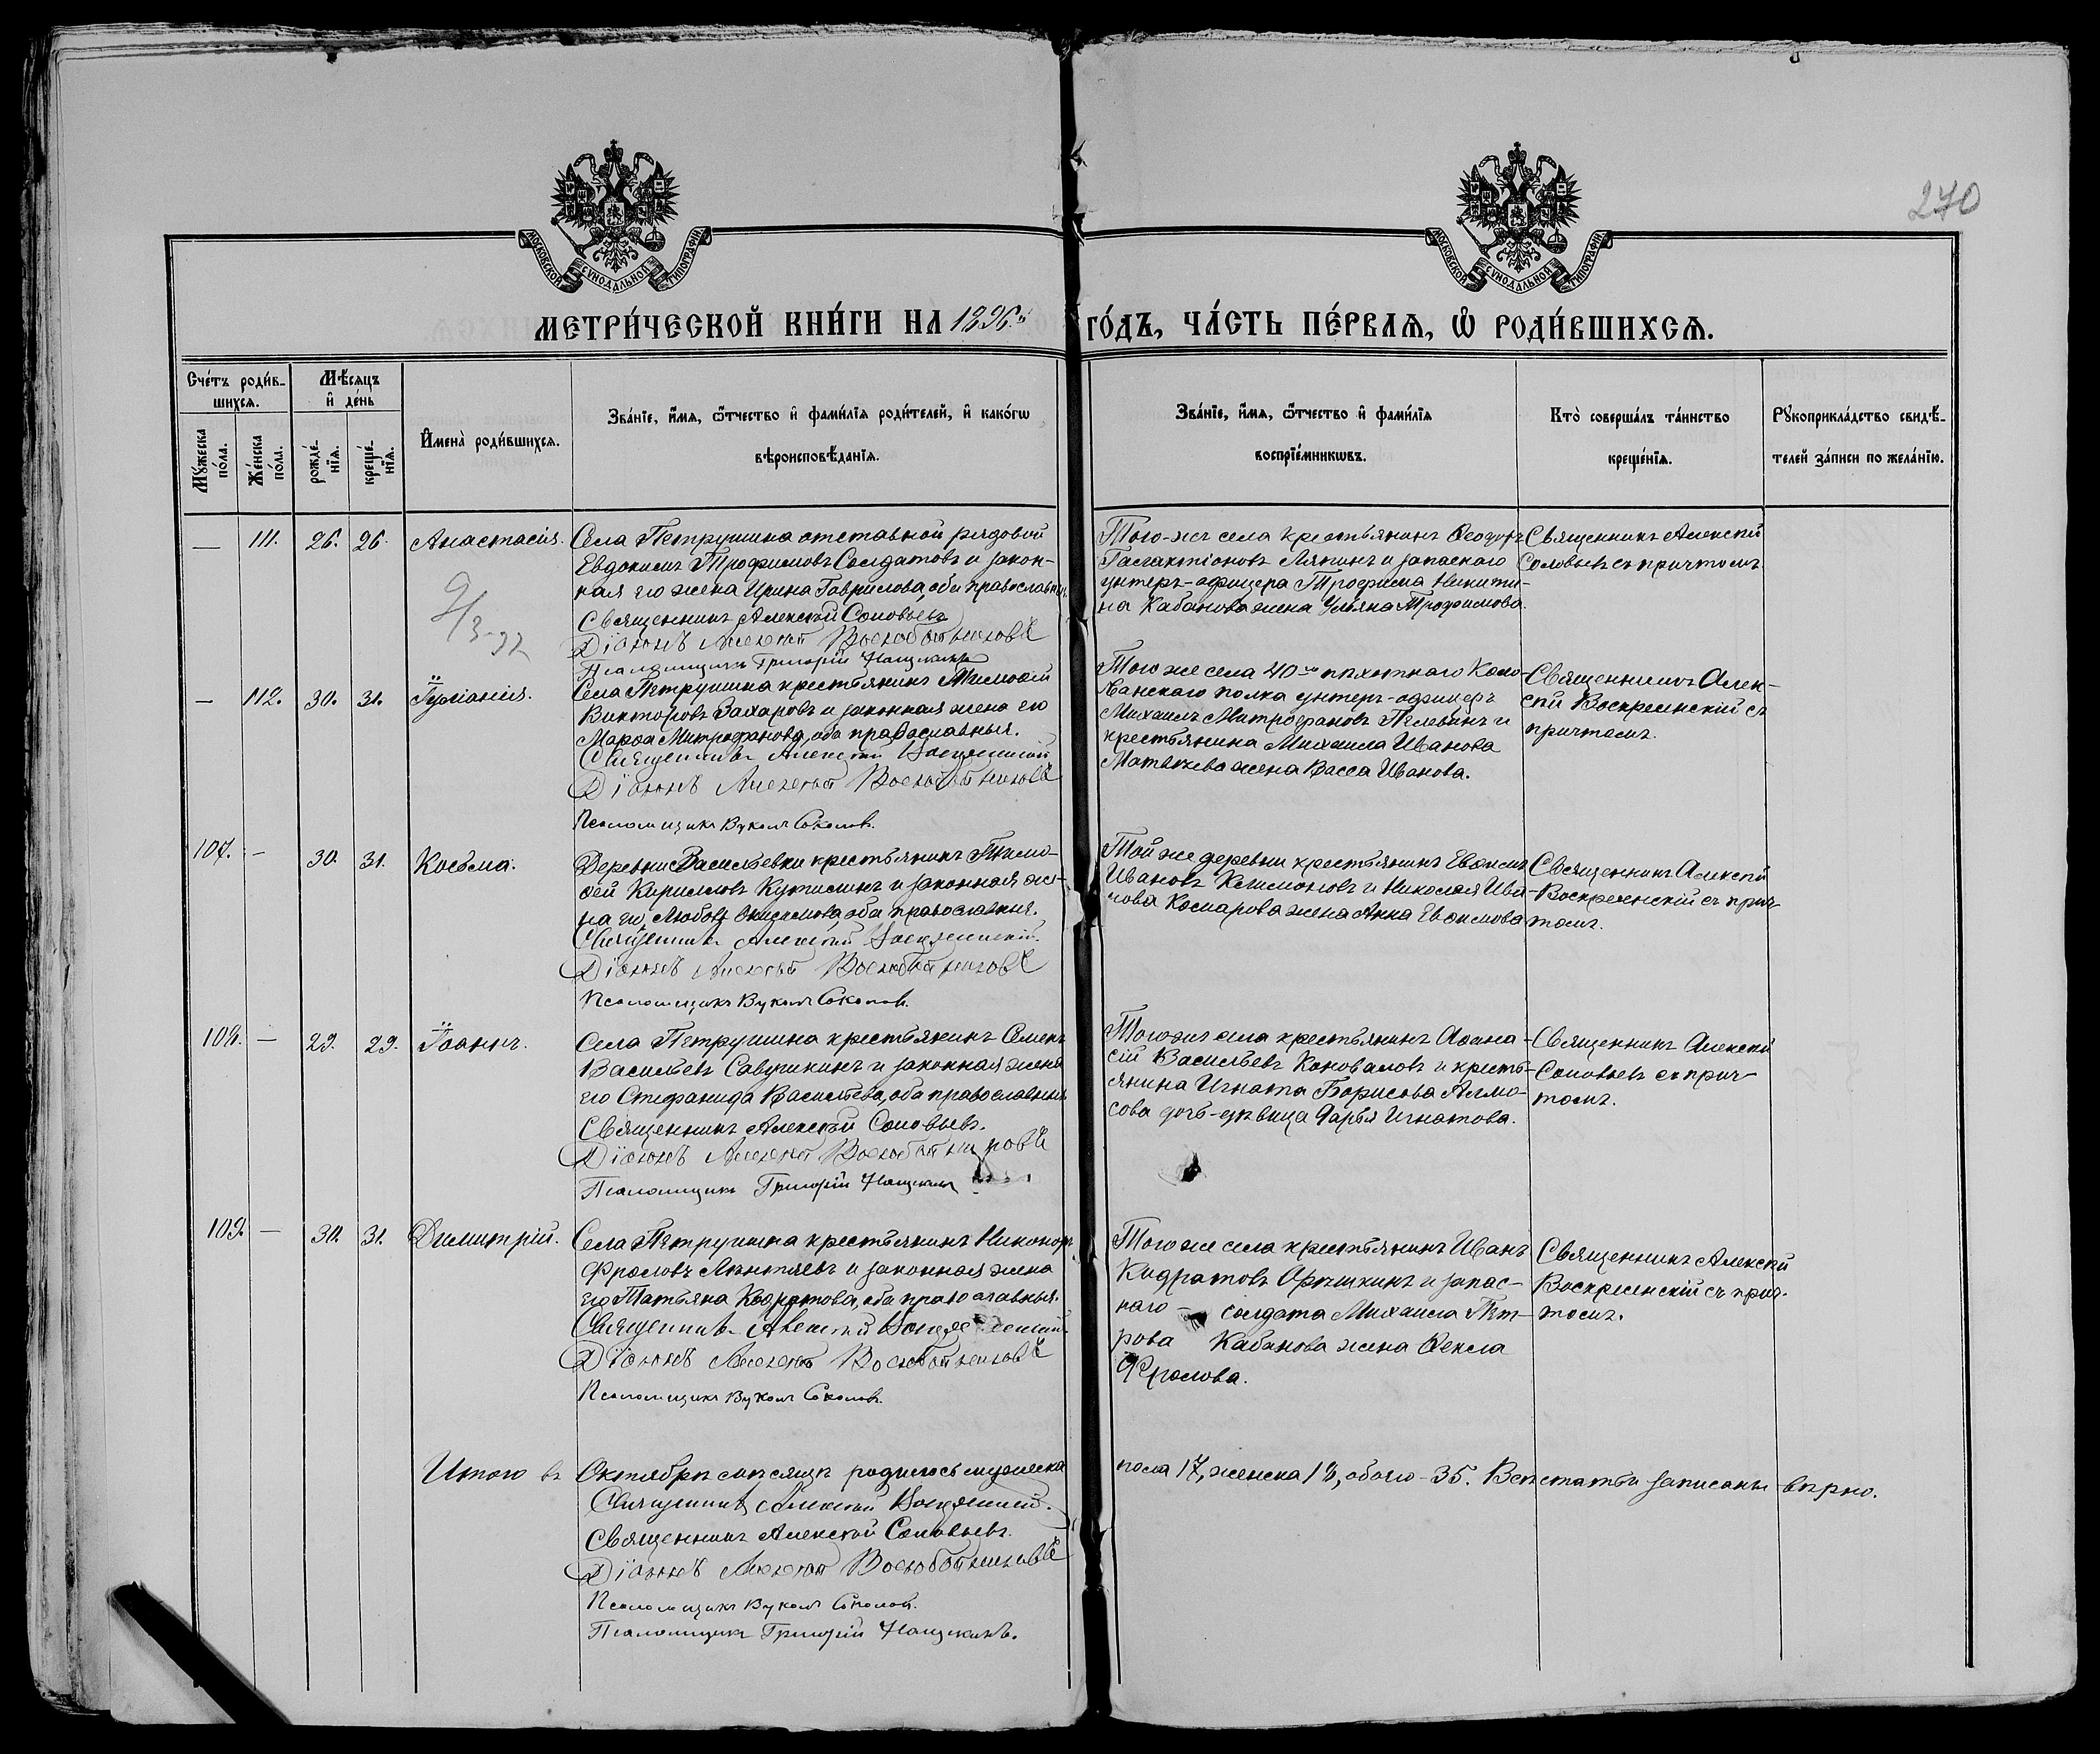 270
МОСКОВСКОЙ СѴНОДАЛЬНОЙ ТИПОГРАФІИ
МОСКОВСКОЙ СѴНОДАЛЬНОЙ ТИПОГРАФІИ
МЕТРИ́ЧЕСКОЙ КНИ́ГИ НА 1896й ГО́ДЪ, ЧА́СТЬ ПЕ́РВАѦ, Ѡ҆ РОДИ́ВШИХСѦ.
Сче́тъ роди́в-
шихсѧ.
Мꙋ́жеска по́ла.
Же́нска по́ла.
Мѣ́сѧцъ
и҆ де́нь
рожде́-
нїѧ.
креще́-
нїѧ.
И҆мена̀ роди́вшихсѧ.
Зва́нїе, и҆́мѧ, ѻ҆́тчество и҆ фами́лїѧ роди́телей, и҆ како́гѡ
вѣроисповѣ́данїѧ.
Зва́нїе, и҆́мѧ, ѻ҆́тчество и҆ фами́лїѧ
воспрїе́мникѡвъ.
Кто̀ соверша́лъ та́инство
креще́нїѧ.
Рꙋкоприкла́дство свидѣ́-
телей за́писи по жела́нїю.
— 111. 26. 26. Анастасія.
Села Петрушина отставной рядовой
Евдокимъ Трофимовъ Солдатовъ и закон-
ная его жена Ирина Гаврилова, оба православныя.
Священникъ Алексѣй Соловьевъ
Діаконъ Алексѣй
Псаломщикъ Григорій
Того-же села крестьянинъ Ѳеодоръ
Галактіоновъ Ляпинъ и запаснаго
унтеръ-офицера Трофима Никити-
на Кабанова жена Ульяна Трофимова.
Священникъ Алексѣй
Соловьевъ съ причтомъ.
9/3-92
— 112. 30. 31. Іуліанія.
Села Петрушина крестьянинъ Тимоѳей
Викторовъ Захаровъ и законная жена его
Марѳа Митрофанова, оба православныя.
Священникъ Алексѣй Воскресенскій
Діаконъ Алексѣй
Псаломщикъ Вуколъ Соколовъ.
Того же села 40го пѣхотнаго Коло-
ванскаго полка унтеръ-офицеръ
Михаилъ Митрофановъ Пелевинъ и
крестьянина Михаила Иванова
Матвѣева жена Васса Иванова.
Священникъ Алек-
сѣй Воскресенскій съ
причтомъ.
107. — 30. 31. Косьма.
Деревни Васильевки крестьянинъ Тимо-
ѳей Кирилловъ Кутилинъ и законная же-
на его Любовь оба православныя.
Священникъ Алексѣй Воскресенскій.
Діаконъ Алексѣй
Псаломщикъ Вуколъ Соколовъ.
Той же деревни крестьянинъ Евѳимъ
Ивановъ Климоновъ и Николая Ива-
нова Комарова жена Анна Евѳимова
Священникъ Алексѣй
Воскресенскій съ прич-
томъ.
108. — 29. 29. Іоаннъ.
Села Петрушина крестьянинъ Семенъ
Васильевъ Савушкинъ и законная жена
его Стефанида Васильева, оба православныя
Священникъ Алексѣй Соловьевъ.
Діаконъ Алексѣй
Псаломщикъ Григорій
Того же села крестьянинъ Аѳана-
сій Васильевъ Коноваловъ и кресть-
янина Игната Борисова Алмо-
сова дочь-дѣвица Дарья Игнатова.
Священникъ Алексѣй
Соловьевъ съ прич-
томъ.
109. — 30. 31. Димитрій.
Села Петрушина крестьянинъ Никоноръ
Фроловъ Лѣнтяевъ и законная жена
его Татьяна Кодратова, оба православныя.
Священникъ Алексѣй Воскресенскій
Діаконъ Алексѣй
Псаломщикъ Вуколъ Соколовъ.
Того же села крестьянинъ Иванъ
Кодратовъ и запас-
наго — солдата Михаила Пет-
рова Кабанова жена Ѳекла
Фролова.
Священникъ Алексѣй
Воскресенскій съ прич-
томъ.
Итого въ Октябрѣ мѣсяцѣ родилось мужеска пола 17, женска 18, обоего — 35. Всѣ статьи записаны вѣрно.
Священникъ Алексѣй Воскресенскій.
Священникъ Алексѣй Соловьевъ.
Діаконъ Алексѣй
Псаломщикъ Вуколъ Соколовъ.
Псаломщикъ Григорій